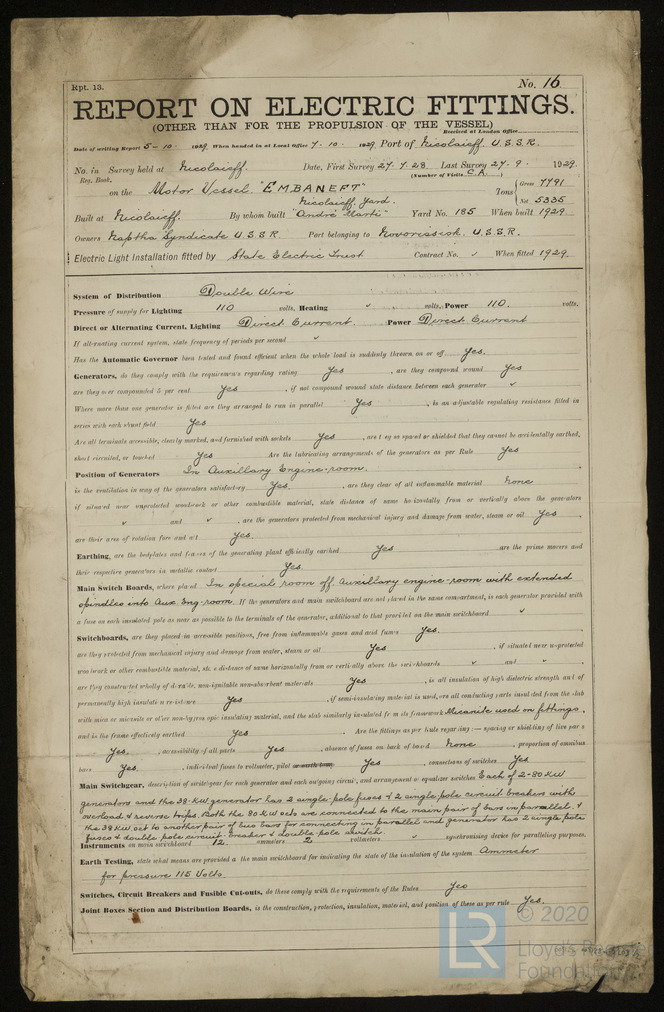 Rpt. 13. No. 16
REPORT ON ELECTRIC FITTINGS.
(OTHER THAN FOR THE PROPULSION OF THE VESSEL)
Received at London Office
Date of writing Report 5-10- 1929. When handed in at Local Office 7-10- 1929. Port of Nicolaieff U.S.S.R.
No. in Survey held at Nicolaieff. Date, First Survey 27.7.28. Last Survey 27.9. 1929.
Reg. Book. (Number of Visits C.A.)
on the Motor Vessel "EMBANEFT" Tons Gross 7791
Net 5335
Nicolaieff Yard.
Built at Nicolaieff. By whom built "André Marti" Yard No. 185 When built 1929
Owners Naptha Syndicate U.S.S.R. Port belonging to Novorossisk. U.S.S.R.
Electric Light Installation fitted by State Electric Trust Contract No. When fitted 1929.
System of Distribution Double Wire
Pressure of supply for Lighting 110 volts, Heating volts, Power 110. volts.
Direct or Alternating Current, Lighting Direct Current. Power Direct Current
If alternating current system, state frequency of periods per second
Has the Automatic Governor been tested and found efficient when the whole load is suddenly thrown on or off Yes.
Generators, do they comply with the requirements regarding rating Yes, are they compound wound Yes
are they over compounded 5 per cent. Yes, if not compound wound state distance between each generator
Where more than one generator is fitted are they arranged to run in parallel Yes, is an adjustable regulating resistance fitted in
series with each shunt field Yes
Are all terminals accessible, clearly marked, and furnished with sockets Yes, are they so spaced or shielded that they cannot be accidentally earthed,
short circuited, or touched Yes Are the lubricating arrangements of the generators as per Rule Yes
Position of Generators In Auxillary Engine-room.
is the ventilation in way of the generators satisfactory Yes, are they clear of all inflammable material None
if situated near unprotected woodwork or other combustible material, state distance of same horizontally from or vertically above the generators
and, are the generators protected from mechanical injury and damage from water, steam or oil Yes
are their axes of rotation fore and aft Yes.
Earthing, are the bedplates and frames of the generating plant efficiently earthed Yes are the prime movers and
their respective generators in metallic contact Yes.
Main Switch Boards, where placed In special room off auxilliary engine-room with extended
spindles into Aux. Eng-room. If the generators and main switchboard are not placed in the same compartment, is each generator provided with
a fuse on each insulated pole as near as possible to the terminals of the generator, additional to that provided on the main switchboard
Switchboards, are they placed in accessible positions, free from inflammable gases and acid fumes Yes.
are they protected from mechanical injury and damage from water, steam or oil Yes, if situated near unprotected
woodwork or other combustible material, state distance of same horizontally from or vertically above the switchboards and
are they constructed wholly of durable, non-ignitable non-absorbent materials Yes, is all insulation of high dielectric strength and of
permanently high insulation resistance Yes, if semi-insulating material is used, are all conducting parts insulated from the slab
with mica or micanite or other non-hygroscopic insulating material, and the slab similarly insulated from its framework Micanite used on fittings,
and is the frame effectively earthed Yes Are the fittings as per Rule regarding:— spacing or shielding of live parts
Yes., accessibility of all parts Yes, absence of fuses on back of board None, proportion of omnibus
bars Yes, individual fuses to voltmeter, pilot or earth lamp Yes, connections of switches Yes
Main Switchgear, description of switchgear for each generator and each outgoing circuit, and arrangement of equalizer switches Each of 2-80 KW
generators and the 38-KW generator has 2 single-pole fuses & 2 single pole circuit breakers with
overload & reverse trips. Both the 80 KW octs are connected to the main pair of bars in parallel, &
the 38 KW. oct to another pair of bus bars for connecting in parallel and generator has 2 single pole
fuses & double pole circuit-breaker & double-pole switch.
Instruments on main switchboard 12. ammeters 2 voltmeters synchronizing device for paralleling purposes.
Earth Testing, state what means are provided at the main switchboard for indicating the state of the insulation of the system Ammeter
for pressure 115 Volts.
Switches, Circuit Breakers and Fusible Cut-outs, do these comply with the requirements of the Rules Yes
Joint Boxes Section and Distribution Boards, is the construction, protection, insulation, material, and position of these as per rule Yes.
LR
© 2020
Lloyd's Register
Foundation